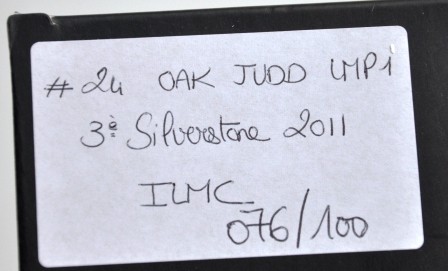 # 24 OAK JUDD LMP1
3è Silverstone 2011
ILMC
076/100